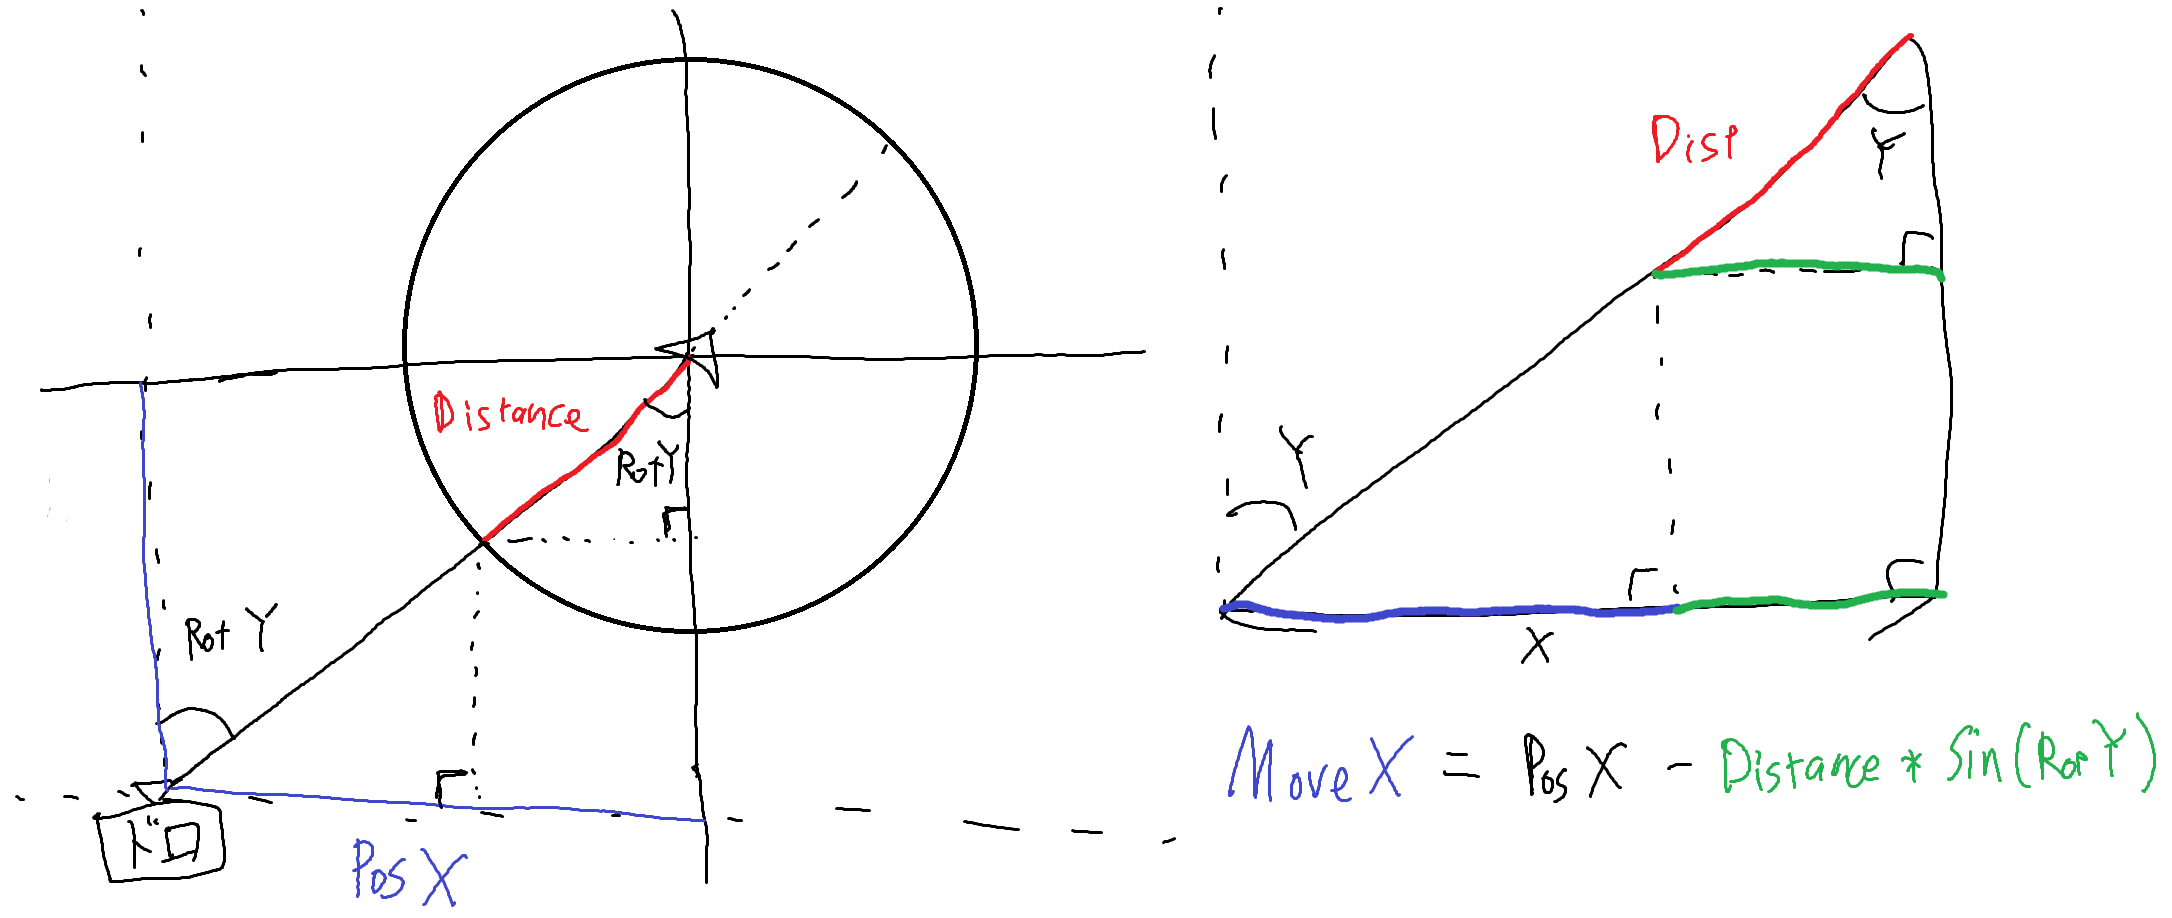 Distance
Rot Y
Rot Y
ドロ
Pos X
Dist
Y
Y
X
Move X = Pos X - Distance * Sin(Rot Y)